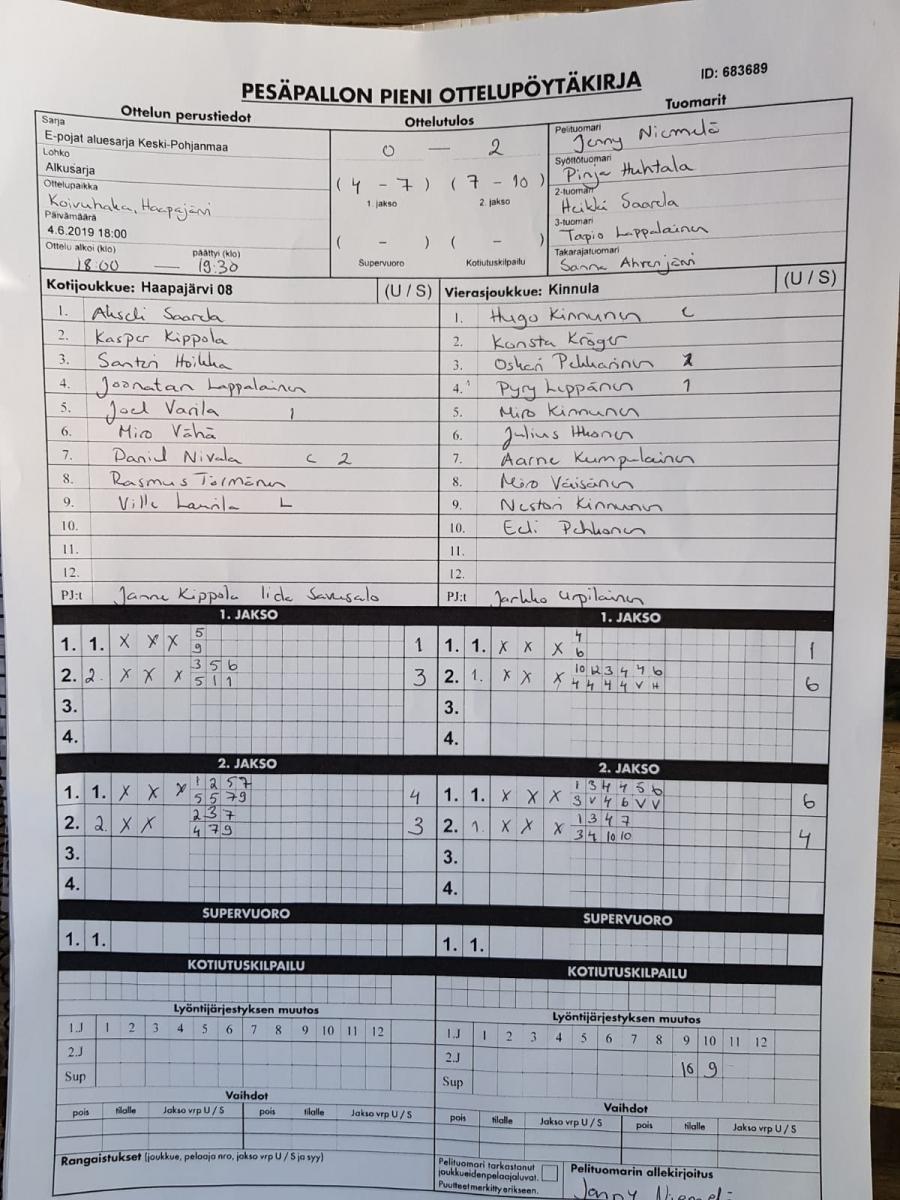 PESÄPALLON PIENI OTTELUPÖYTÄKIRJA
ID: 683689
Ottelun perustiedot
Sarja
E-pojat aluesarja Keski-Pohjanmaa
Lohko
Alkusarja
Ottelupaikka
Koivuhaka, Haapajärvi
Päivämäärä
4.6.2019 18:00
Ottelu alkoi (klo) päättyi (klo)
18:00 — 19:30
Ottelutulos
0 — 2
(4 - 7) (7 - 10)
1. jakso 2. jakso
( - ) ( - )
Supervuoro Kotiutuskilpailu
Tuomarit
Pelituomari
Jenny Niemelä
Syöttötuomari
Pinja Huhtala
2-tuomari
Heikki Saarela
3-tuomari
Tapio Lappalainen
Takarajatuomari
Sanna Ahrenjärvi
Kotijoukkue: Haapajärvi 08 (U / S)
1. Akseli Saarela
2. Kasper Kippola
3. Santeri Hoikka
4. Joonatan Lappalainen
5. Joel Varila 1
6. Miro Vähä
7. Daniel Nivala C 2
8. Rasmus Törmänen
9. Ville Laurila L
10.
11.
12.
PJ:t Janne Kippola Iida Savusalo
Vierasjoukkue: Kinnula (U / S)
1. Hugo Kinnunen C
2. Konsta Kröger
3. Oskari Pekkarinen 2
4. Pyry Leppänen 1
5. Miro Kinnunen
6. Julius Itkonen
7. Aarne Kumpulainen
8. Miro Väisänen
9. Nestori Kinnunen
10. Eeli Pehkonen
11.
12.
PJ:t Jarkko Urpilainen
1. JAKSO
1. 1. X X X 5 1
9
2. 2. X X X 3 5 6 3
5 1 1
3.
4.
1. JAKSO
1. 1. X X X 4 1
6
2. 1. X X X 10 1 2 3 4 4 6 6
4 4 4 4 V H
3.
4.
2. JAKSO
1. 1. X X X 1 2 5 7 4
5 5 7 9
2. 2. X X 2 3 7 3
4 7 9
3.
4.
2. JAKSO
1. 1. X X X 1 3 4 4 5 6 6
3 V 4 6 V V
2. 1. X X X 1 3 4 7 4
3 4 10 10
3.
4.
SUPERVUORO
1. 1.
SUPERVUORO
1. 1.
KOTIUTUSKILPAILU
KOTIUTUSKILPAILU
Lyöntijärjestyksen muutos
1.J 1 2 3 4 5 6 7 8 9 10 11 12
2.J
Sup
Lyöntijärjestyksen muutos
1.J 1 2 3 4 5 6 7 8 9 10 11 12
2.J 10 9
Sup
Vaihdot
pois tilalle Jakso vrp U / S pois tilalle Jakso vrp U / S
Vaihdot
pois tilalle Jakso vrp U / S pois tilalle Jakso vrp U / S
Rangaistukset (joukkue, pelaaja nro, jakso vrp U / S ja syy)
Pelituomari tarkastanut
joukkueidenpelaajaluvat.
Puutteet merkitty erikseen.
Pelituomarin allekirjoitus
Jenny Niemelä